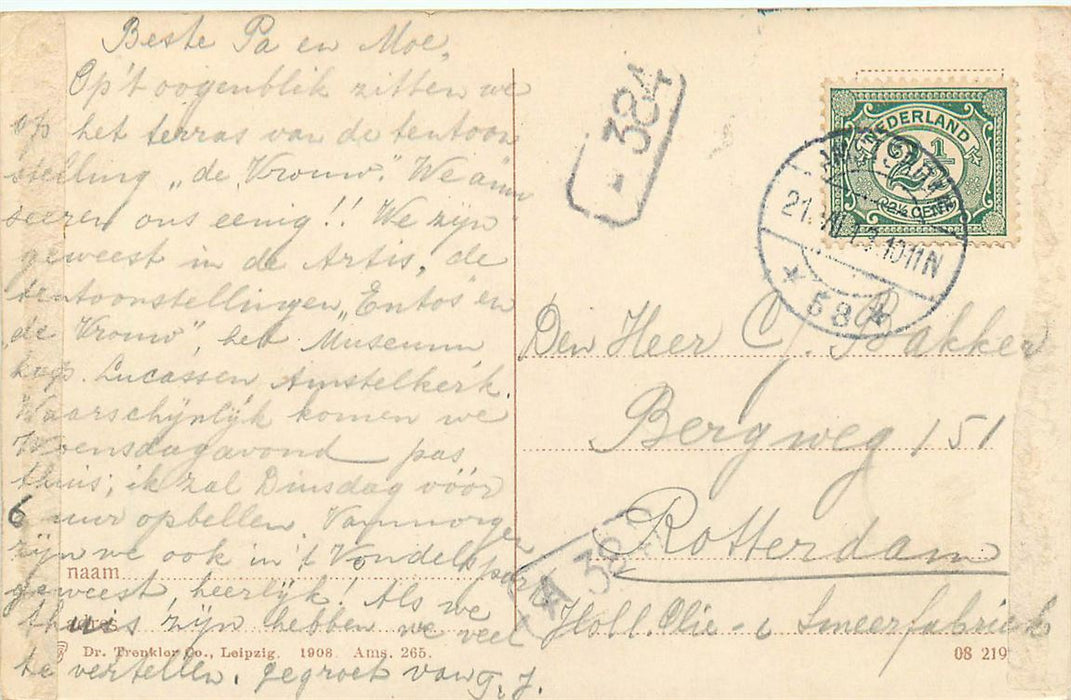 Beste Pa en Moe,
Op't oogenblik zitten we
op het terras van de tentoon
stelling „de Vrouw". We amu
seeren ons eenig!! We zijn
geweest in de Artis, de
tentoonstellingen „Entos" en
de Vrouw", het Museum
kop. Lucassen Amstelkerk.
Waarschijnlijk komen we
Woensdagavond pas
thuis; ik zal Dinsdag vóór
6 uur opbellen. Vanmorgen
zijn we ook in 't Vondelspark
geweest, heerlijk! Als we
thuis zijn hebben we veel
te vertellen. gegroet van T. J.
naam
Dr. Trenkler Co., Leipzig. 1908 Ams. 265.
384
NEDERLAND
2½
CENT
21. 10-11N
58
Den Heer C. J. Bakker
Bergweg 151
Rotterdam
Holl. Olie- & Smeerfabriek
38
08 219